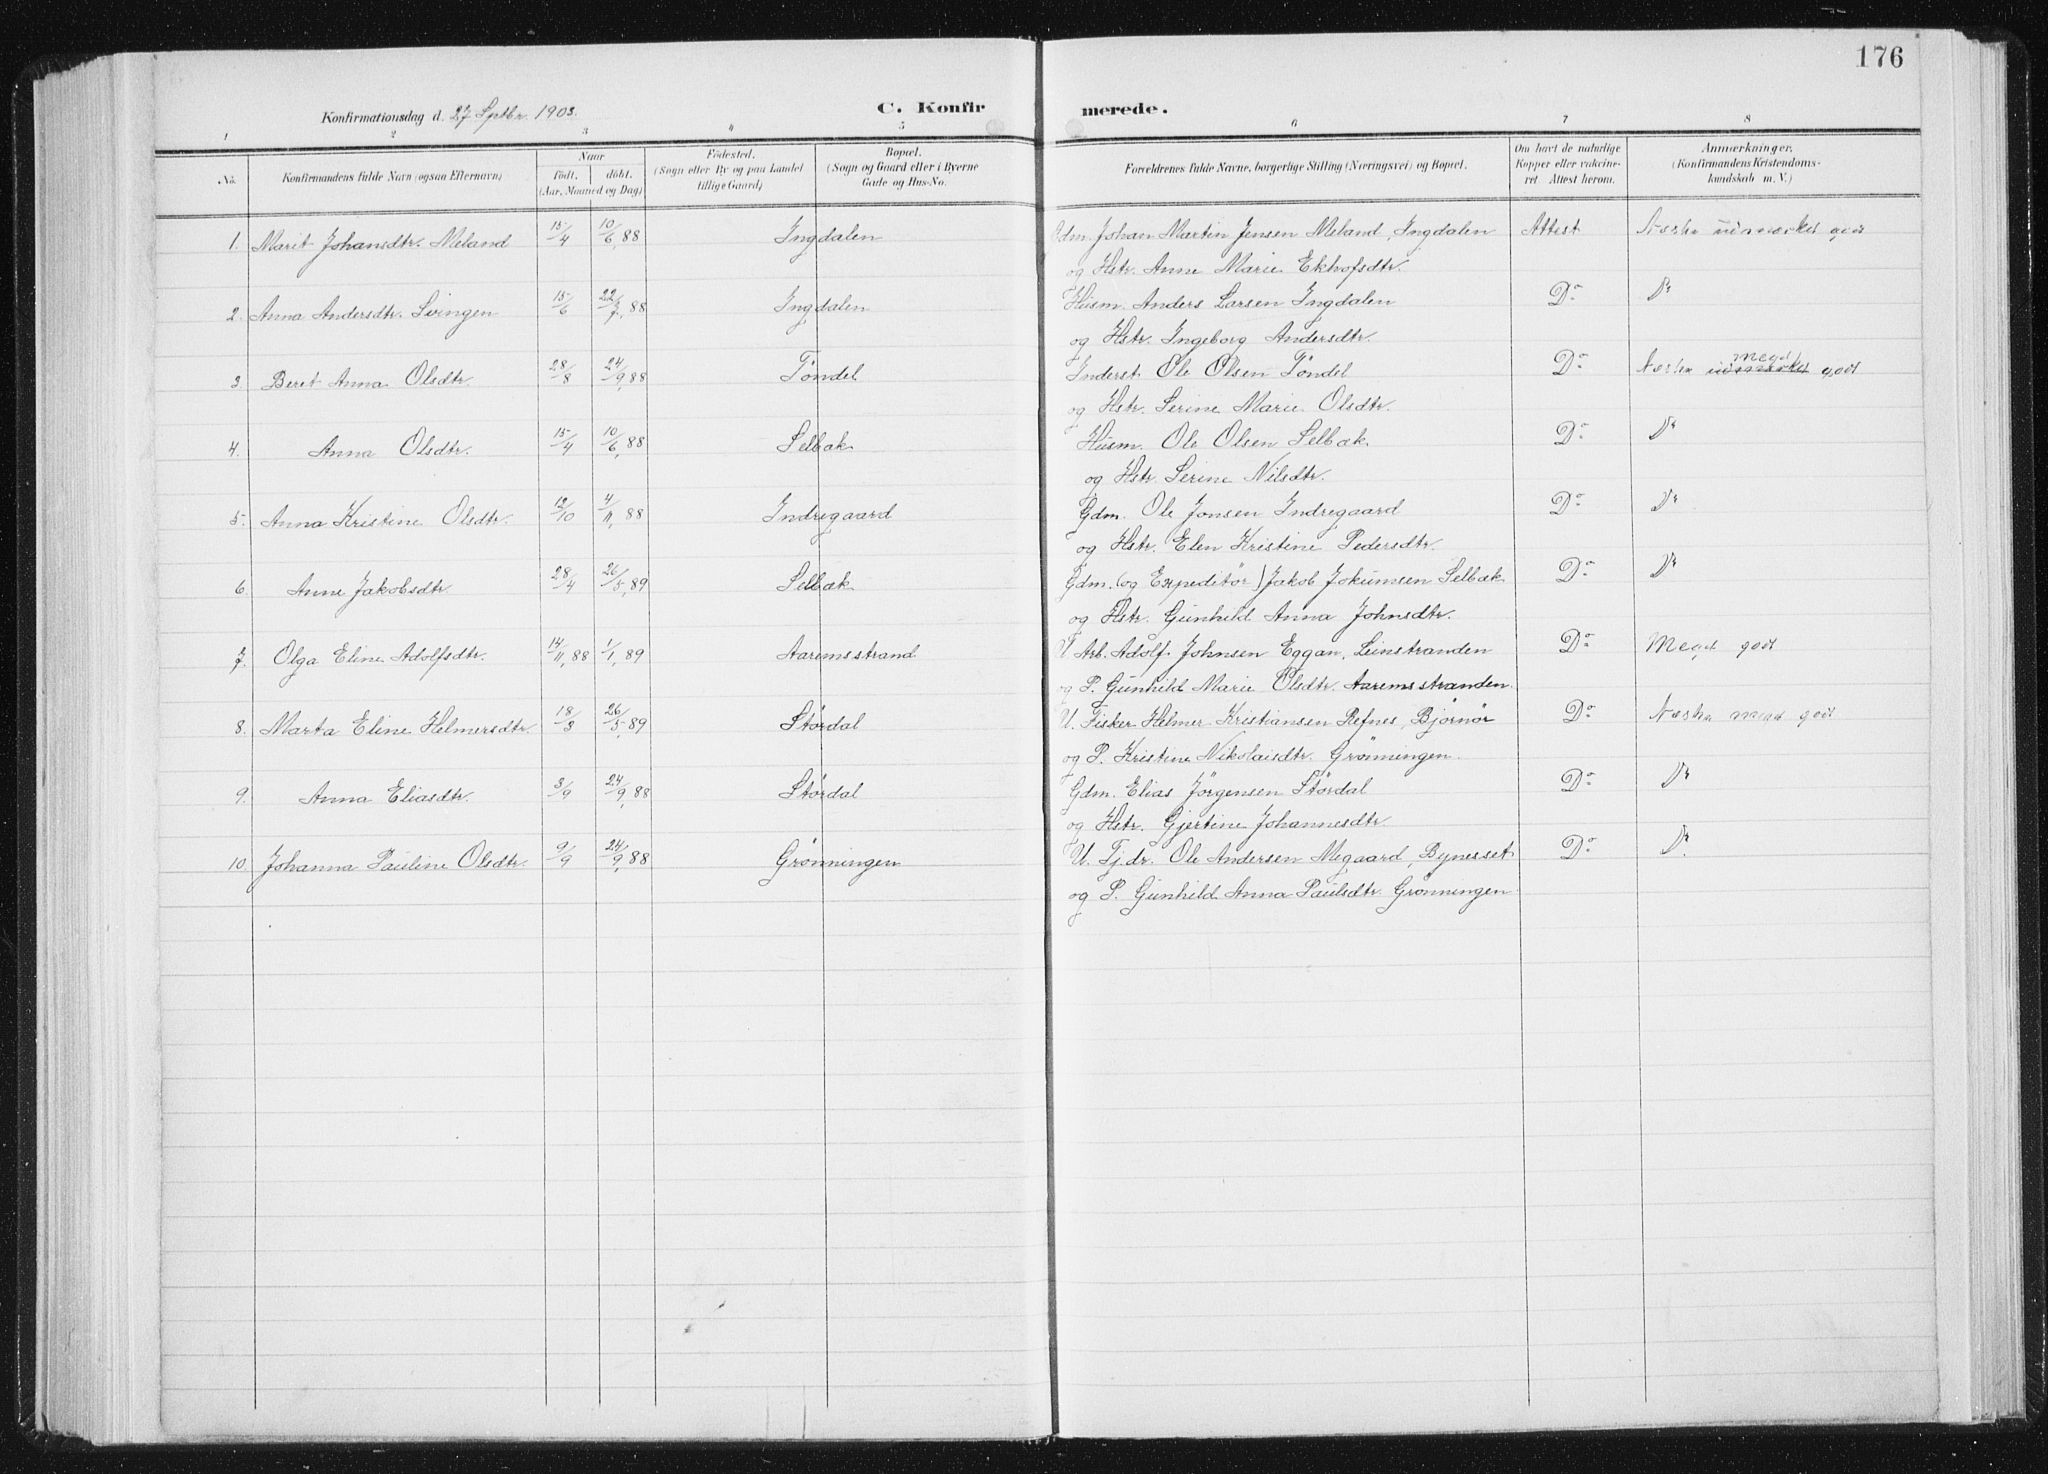 176
Konfirmationsdag d. 27 Septbr. 1903.
C. Konfir merede.
1 2 3 4 5 6 7 8
No. Konfirmandens fulde Navn (ogsaa Efternavn) Naar født. døbt. (Aar, Maaned og Dag) Fødested. (Sogn eller By og paa Landet tillige Gaard) Bopæl. (Sogn og Gaard eller i Byerne Gade og Hus-No. Forældrenes fulde Navne, borgerlige Stilling (Næringsvei) og Bopæl. Om havt de naturlige Kopper eller vakcineret Attest herom. Anmærkninger. (Konfirmandens Kristendomskundskab m. V.)
1. Marit Johansdtr. Meland 15/4 10/6, 88 Ingdalen Gdm. Johan Martin Jensen Meland, Ingdalen Attest Næsten udmærket godt
og Hstr. Anne Marie Ekhofsdtr.
2. Anna Andersdtr. Svingen 15/6 22/7, 88 Ingdalen Husm. Anders Larsen Ingdalen Do Do
og Hstr. Ingeborg Andersdtr.
3. Beret Anna Olsdtr. 28/8 24/9, 88 Töndel Inderst. Ole Olsen Töndel Do Næsten udmærket meget godt
og Hstr. Serine Marie Olsdtr.
4. Anna Olsdtr. 15/4 10/6, 88 Selbæk Husm. Ole Olsen Selbæk. Do Do
og Hstr. Serine Nilsdtr.
5. Anna Kristine Olsdtr. 12/10 4/11, 88 Indregaard Gdm. Ole Jonsen Indregaard Do Do
og Hstr. Elen Kristine Pedersdtr.
6. Anne Jakobsdtr. 28/4 26/5, 89 Selbæk Gdm. (og Expeditör) Jakob Jokumsen Selbæk Do Do
og Hstr. Gunhild Anna Johnsdtr.
7. Olga Eline Adolfsdtr. 14/11, 88 1/1, 89 Aaremsstrand U. Arb. Adolf Johnsen Eggan, Leinstranden Do Meget godt
og P. Gunhild Marie Olsdtr. Aaremsstranden.
8. Marta Eline Helmersdtr. 18/3 26/5, 89 Stördal U. Fisker Helmer Kristiansen Refnes, Björnör Do Næsten meget godt
og P. Kristine Nikolaisdtr. Grönningen.
9. Anna Eliasdtr. 3/9 24/9, 88 Stördal Gdm. Elias Jörgensen Stördal Do Do
og Hstr. Gjertine Johannesdtr.
10. Johanna Pauline Olsdtr. 9/9 24/9, 88 Grönningen U. Tj.dr. Ole Andersen Megaard, Bynesset Do Do
og P. Gunhild Anna Paulsdtr. Grönningen